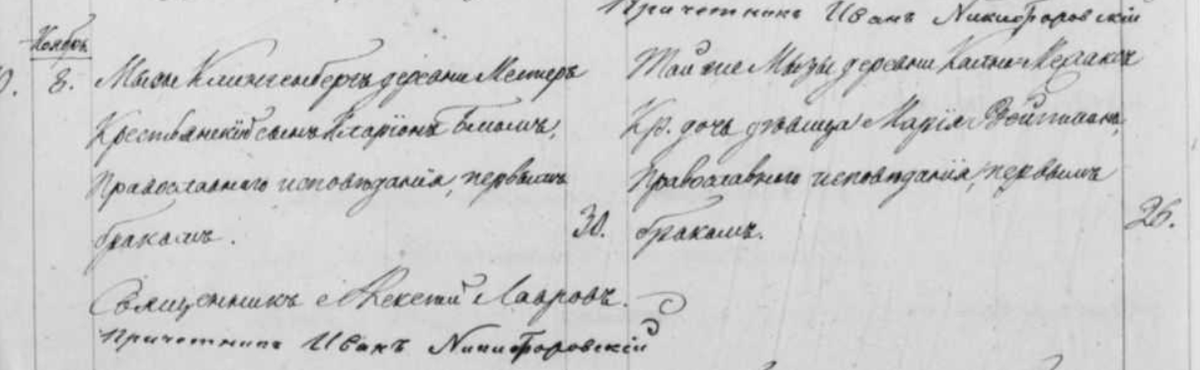 Причетникъ Иванъ Никифоровскій
Ноябрь
8. Мызы Клингенбергъ деревни
Крестьянскій сынъ Иларіонъ
Православнаго исповѣданія, первымъ
бракомъ. 30.
Той же Мызы деревни
Кр. дочь дѣвица Марія
Православнаго исповѣданія, первымъ
бракомъ. 26.
Священникъ Алексѣй Лавровъ.
Причетникъ Иванъ Никифоровскій